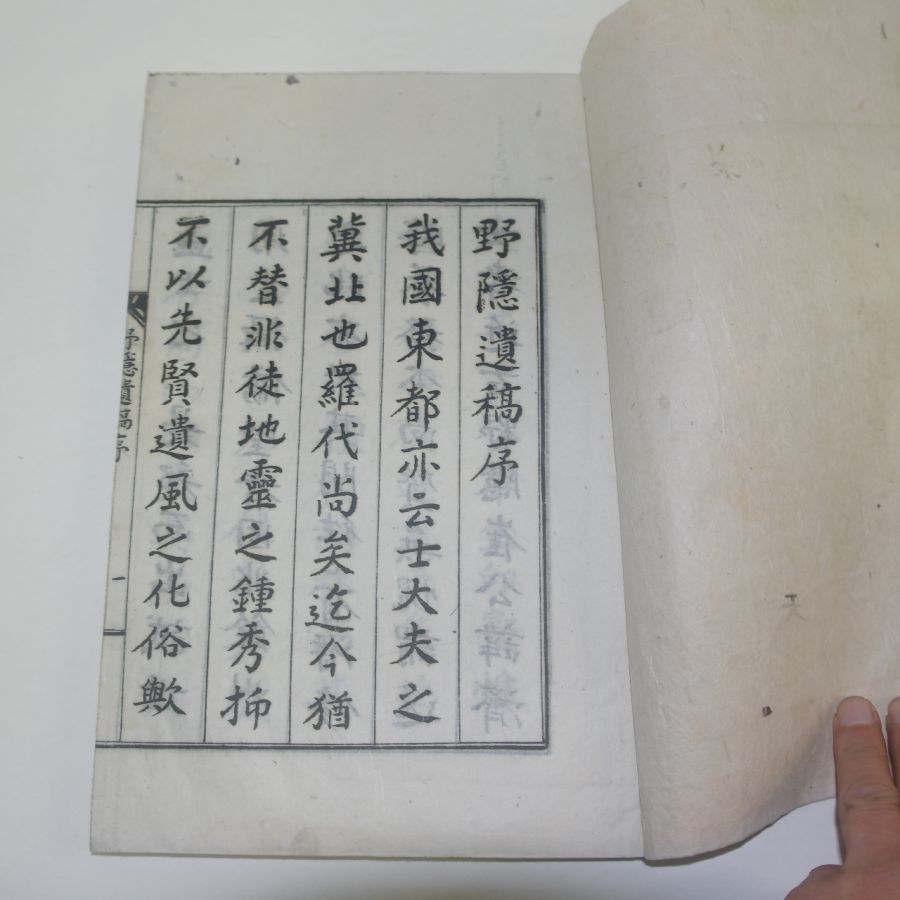 野隱遺稿序
我國東都亦云士大夫之
冀北也羅代尚矣迄今猶
不替非徒地靈之鍾秀抑
不以先賢遺風之化俗歟
野隱遺稿序
一